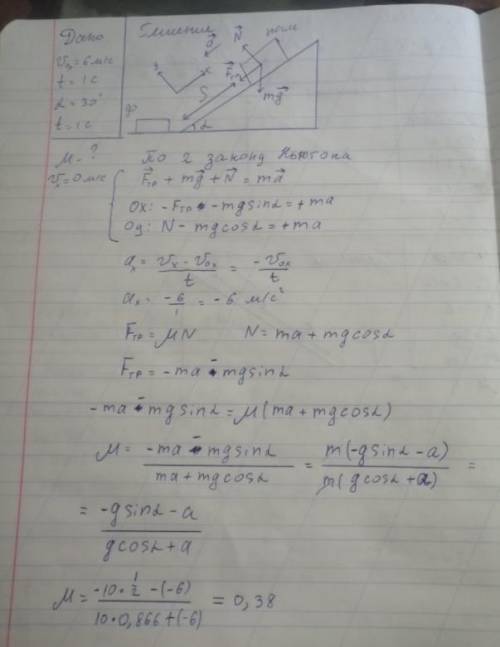 Дано
Решение
υ₀ₓ = 6 м/с
t = 1 c
α = 30°
t = 1 c
μ - ?
υₓ = 0 м/с
y
x
a⃗
N⃗
после
F⃗тр
mg⃗
S
до
α
По 2 закону Ньютона
F⃗тр + mg⃗ + N⃗ = ma⃗
Ox: -Fтр - mgsinα = +ma
Oy: N - mgcosα = +ma
aₓ = (υₓ - υ₀ₓ)/t = -υ₀ₓ/t
aₓ = -6/1 = -6 м/с²
Fтр = μN N = ma + mgcosα
Fтр = -ma - mgsinα
-ma - mgsinα = μ(ma + mgcosα)
μ = (-ma - mgsinα)/(ma + mgcosα) = m(-gsinα - a)/m(gcosα + a) =
= (-gsinα - a)/(gcosα + a)
μ = (-10·1/2 - (-6))/(10·0,866 + (-6)) = 0,38